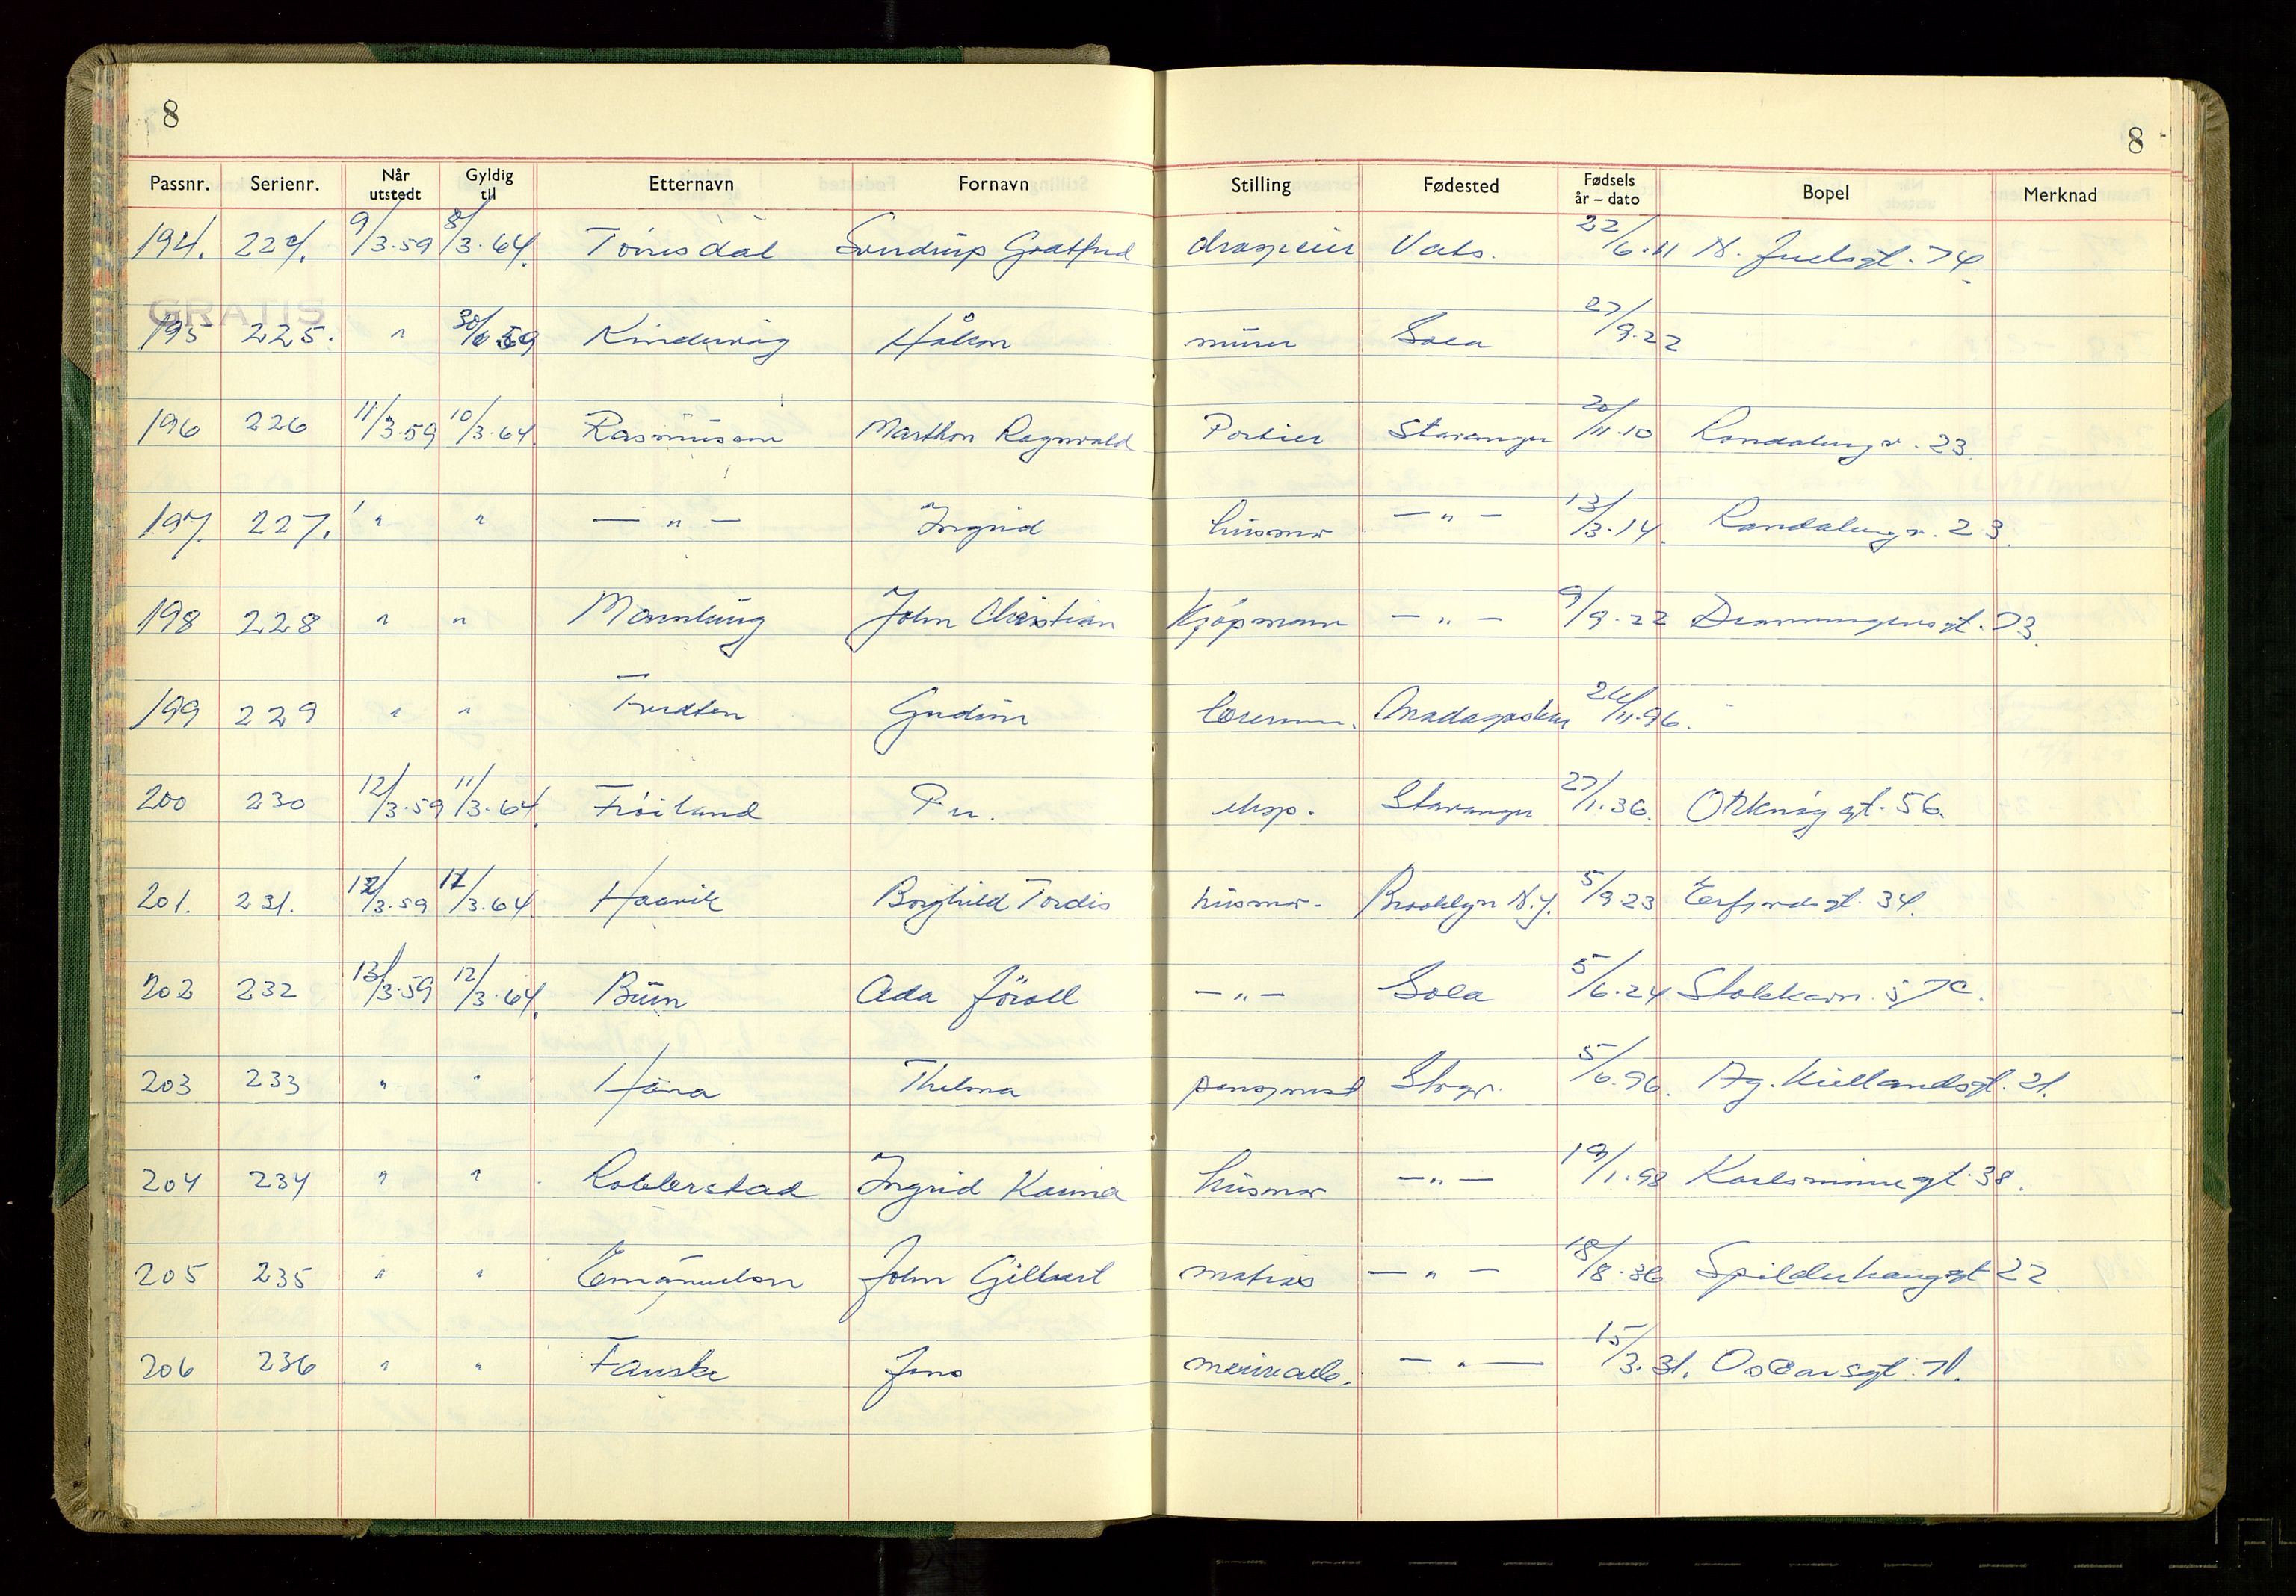 8
8
Passnr. Serienr. Når utstedt Gyldig til Etternavn Fornavn Stilling Fødested Fødsels år – dato Bopel Merknad
194. 224. 9/3.59 8/3.64. Tönsdal Svendrup Gottfred Vats. 22/6.11 N. Juelsgt. 74.
GRATIS
195 225. " 30/6 59 Kindervåg Håkon murer Sola 27/9.22
196 226 11/3.59 10/3.64. Rasmussen Marthon Ragnvald Portier Stavanger 20/11.10 23.
197. 227. " " — " — Ingrid husmor — " — 13/3.14. 23.
198 228 " " John Christian Kjøpmann — " — 9/9.22 Dronningensgt. 73.
199 229 " " Gudrun Madagaskar 26/11.96.
200 230 12/3.59 11/3.64. Fröiland eksp. Stavanger 27/1.36. gt. 56.
201. 231. 12/3.59 11/3.64. Haavik Borghild Tordis husmor. Brooklyn N.Y. 5/9 23 Erfjordsgt. 34.
202 232 13/3.59 12/3.64. Buin Ada — " — Sola 5/6.24
203 233 " " Hana Thelma pensjonist Stvgr. 5/6.96. Ag. Kiellandsgt. 21.
204 234 " " Ingrid Karina husmor — " — 19/1.98 Karlsminnegt. 38.
205 235 " " Emanuelson John Gilbert matros — " — 18/8.36 Spilderhauggt 22
206 236 " " Fauske Jens — " — 15/3.31. Oscarsgt. 71.